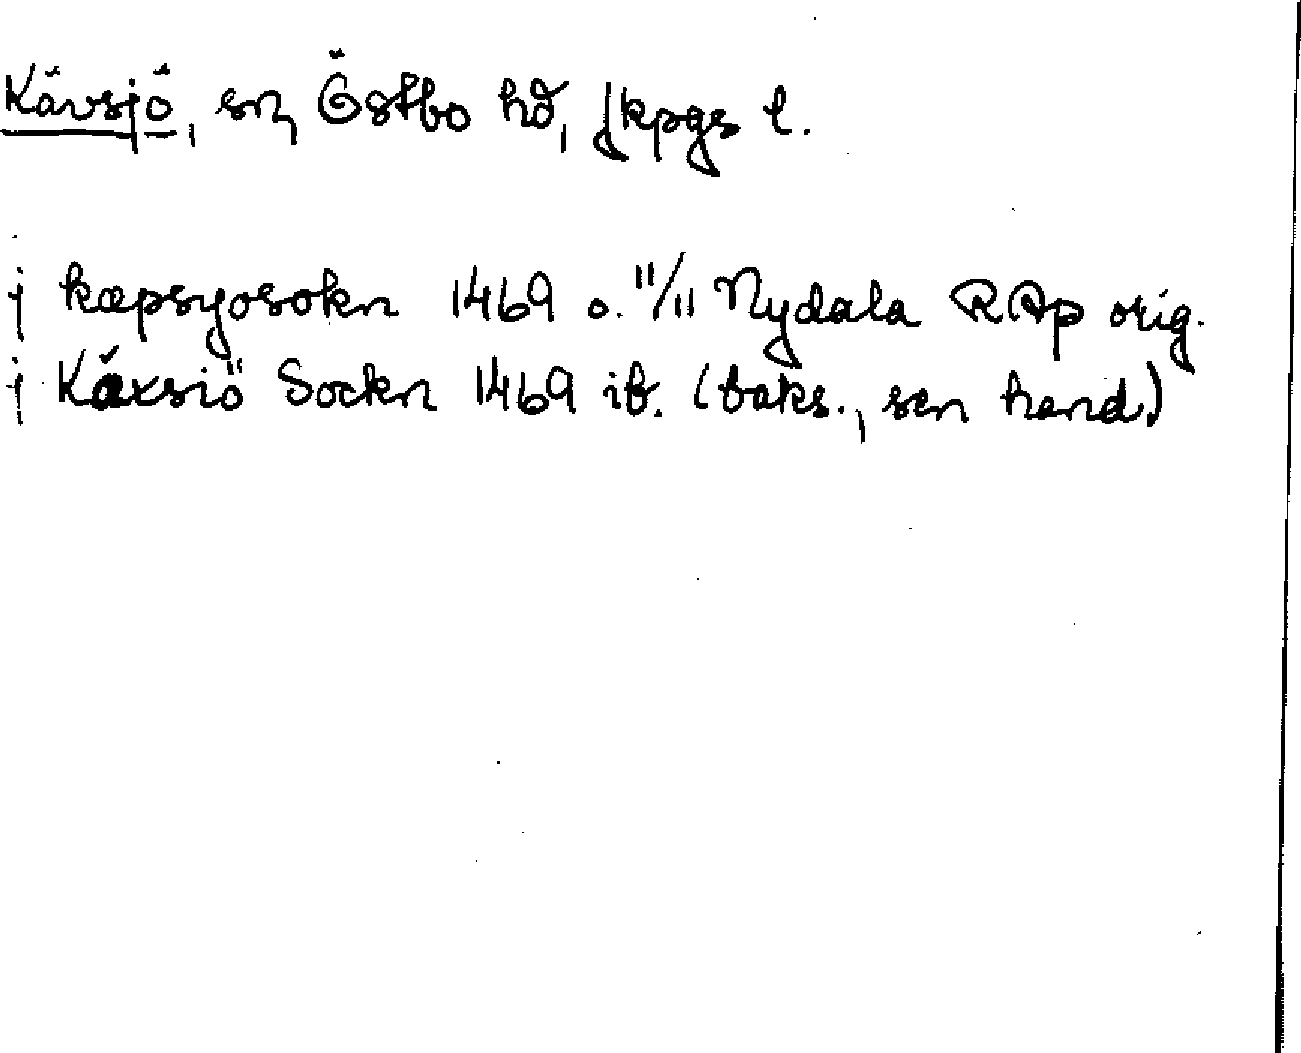 Kävsjö, sn, Östbo hd, Jkpgs l.
j kæpsyosokn 1469 o. 11/11 Nydala RAp orig.
j Käxsiö Sockn 1469 ib. (baks., sen hand.)